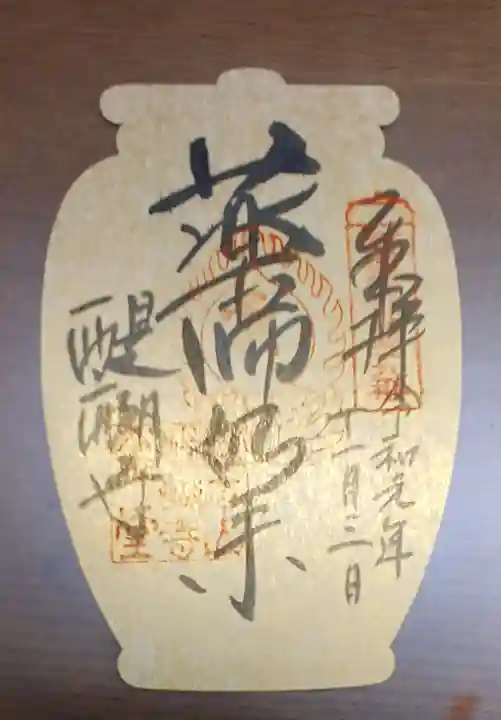 奉拝
令和元年
十一月三日
薬師如来
醍醐寺